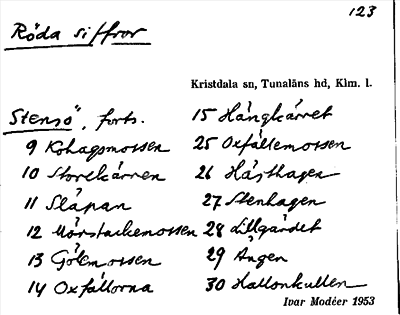 123
Röda siffror
Kristdala sn, Tunaläns hd, Klm. l.
Stensö, forts.
9 Kohagsmossen
10 Storekärren
11 Slåpan
12 Mörstackemossen
13 Gölemossen
14 Oxfällorna
15 Hängkärret
25 Oxfällemossen
26 Hästhagen
27 Stenhagen
28 Lillgärdet
29 Ängen
30 Hallonkullen
Ivar Modéer 1953